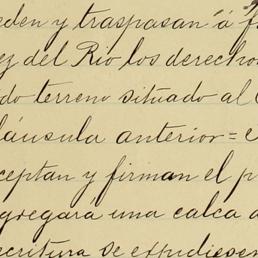 eden y traspasan á f
ez del Rio los derecho
do terreno situado al C
láusula anterior = e
ceptan y firman el p
gregará una calca d
scritura se expudiesen